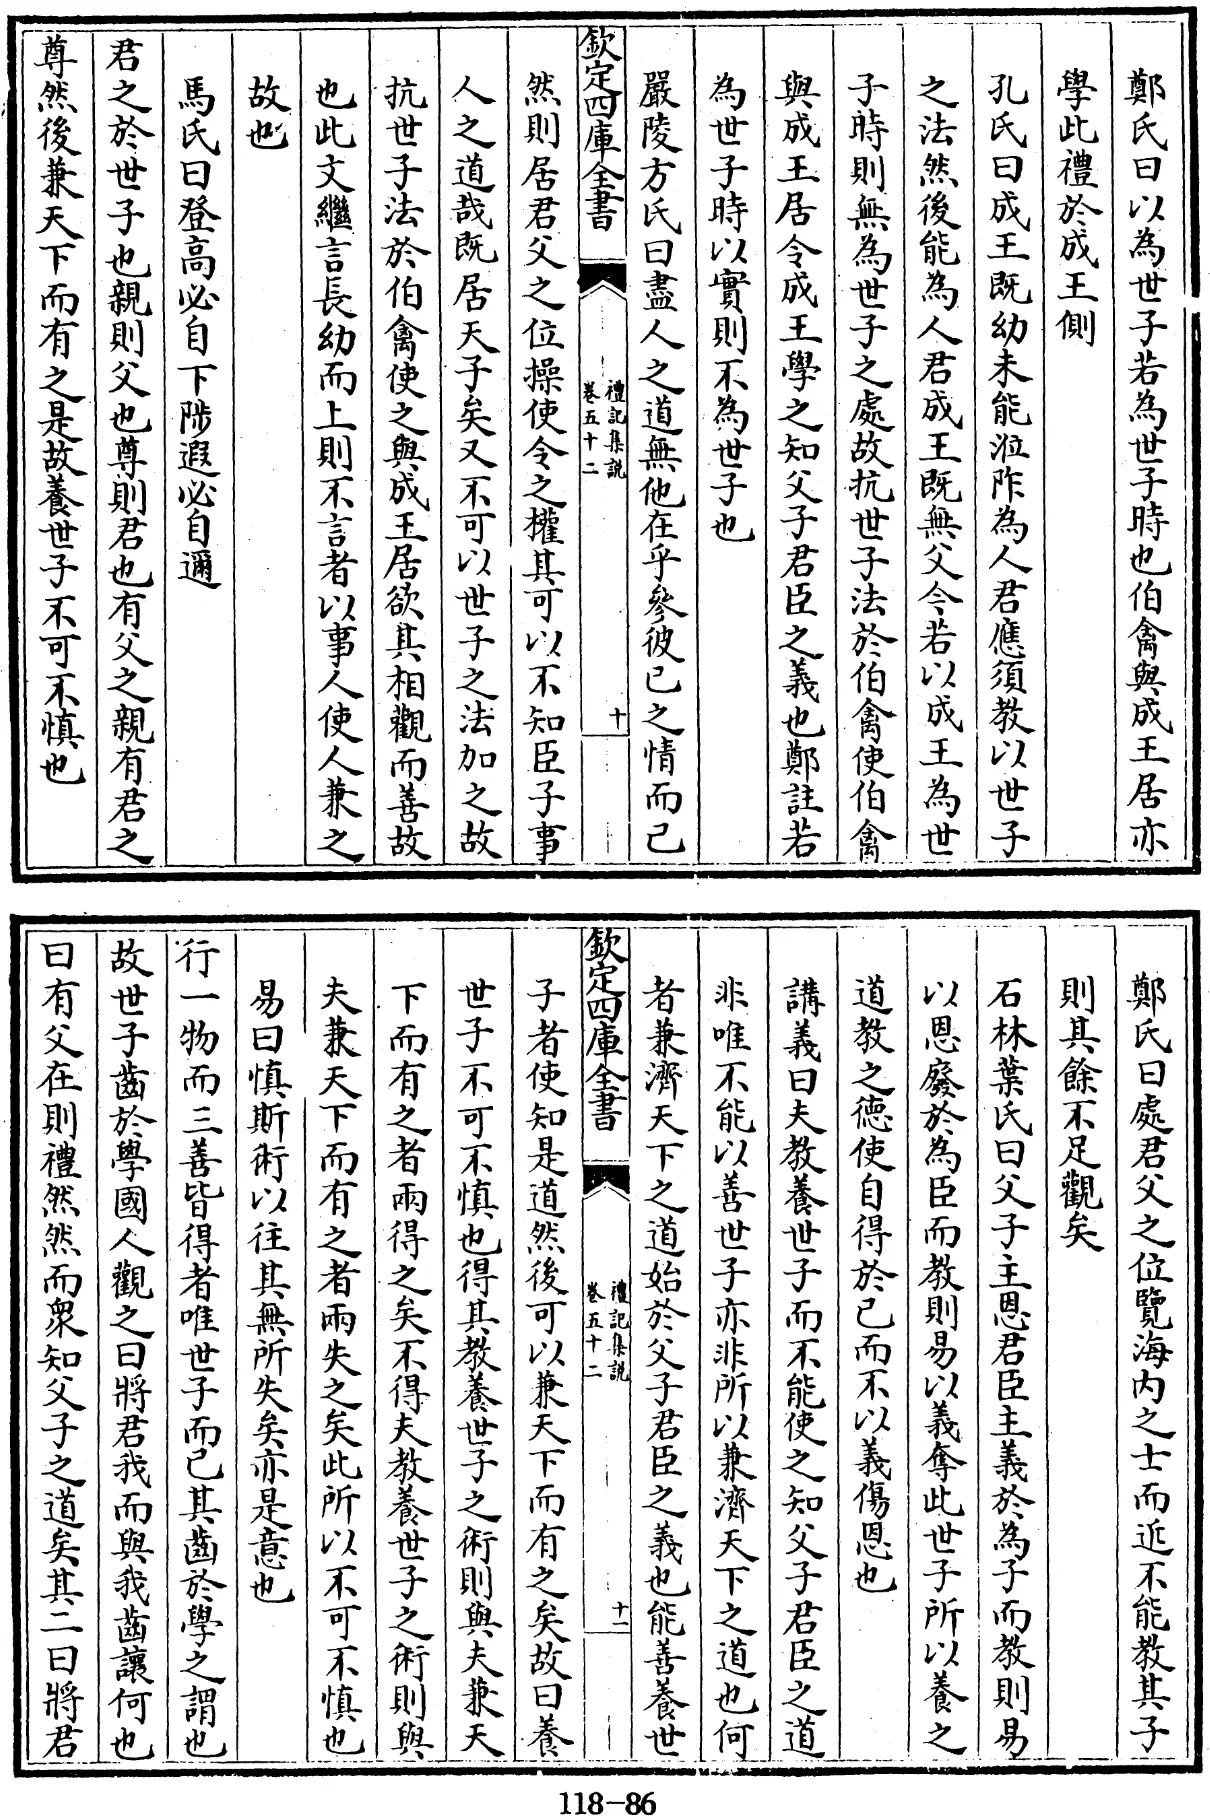 鄭氏曰以為世子若為世子時也伯禽與成王居亦
學此禮於成王側
孔氏曰成王既幼未能涖阼為人君應須教以世子
之法然後能為人君成王既無父今若以成王為世
子時則無為世子之處故抗世子法於伯禽使伯禽
與成王居令成王學之知父子君臣之義也鄭註若
為世子時以實則不為世子也
嚴陵方氏曰盡人之道無他在乎參彼己之情而已
欽定四庫全書
禮記集說
卷五十二
十
然則居君父之位操使令之權其可以不知臣子事
人之道哉既居天子矣又不可以世子之法加之故
抗世子法於伯禽使之與成王居欲其相觀而善故
也此文繼言長幼而上則不言者以事人使人兼之
故也
馬氏曰登高必自下陟遐必自邇
君之於世子也親則父也尊則君也有父之親有君之
尊然後兼天下而有之是故養世子不可不慎也
鄭氏曰處君父之位覽海内之士而近不能教其子
則其餘不足觀矣
石林葉氏曰父子主恩君臣主義於為子而教則易
以恩廢於為臣而教則易以義奪此世子所以養之
道教之德使自得於己而不以義傷恩也
講義曰夫教養世子而不能使之知父子君臣之道
非唯不能以善世子亦非所以兼濟天下之道也何
者兼濟天下之道始於父子君臣之義也能善養世
欽定四庫全書
禮記集說
卷五十二
十一
子者使知是道然後可以兼天下而有之矣故曰養
世子不可不慎也得其教養世子之術則與夫兼天
下而有之者兩得之矣不得夫教養世子之術則與
夫兼天下而有之者兩失之矣此所以不可不慎也
易曰慎斯術以往其無所失矣亦是意也
行一物而三善皆得者唯世子而已其齒於學之謂也
故世子齒於學國人觀之曰將君我而與我齒讓何也
曰有父在則禮然然而衆知父子之道矣其二曰將君
118-86